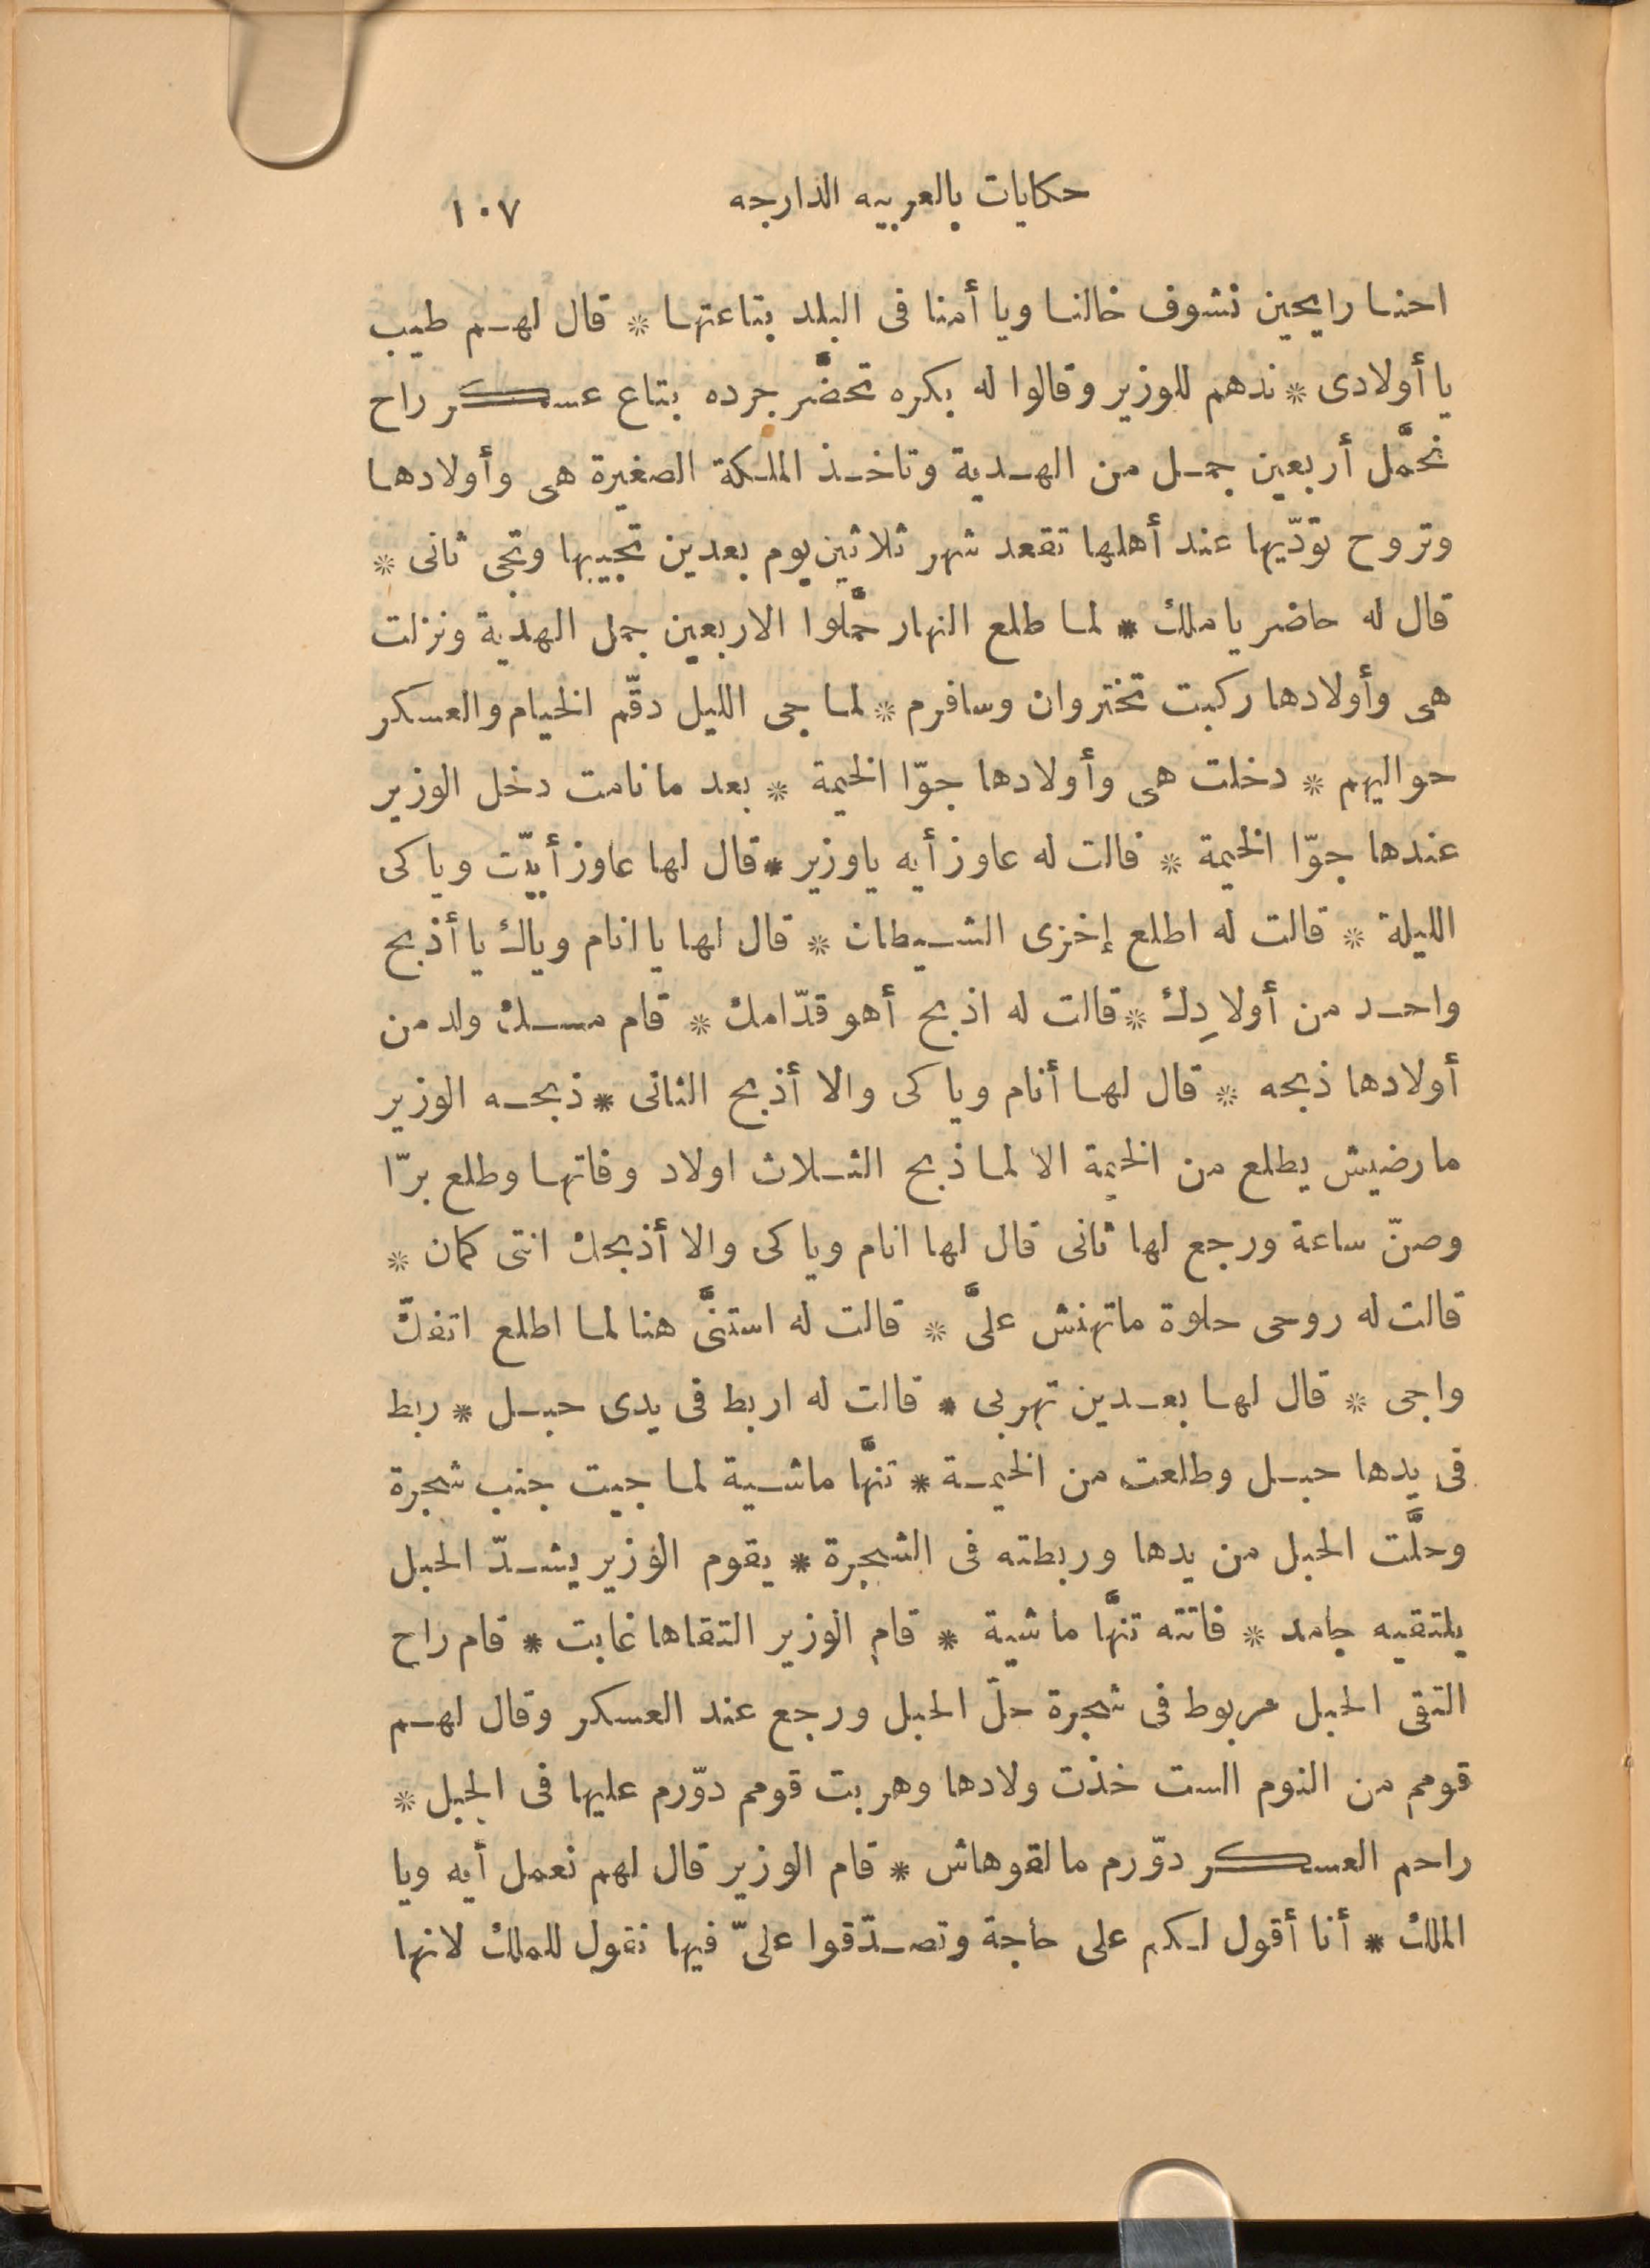 حكايات بالعربيه الدارجه ١٠٧
احنا رايحين نشوف خالنا ويا أمنا فى البلد بتاعتها * قال لهم طيب
يا أولادى * ندهم للوزير وقالوا له بكره تحضَّر جرده بتاع عسكر راح
نحَّمل أربعين جمل من الهدية وتاخذ الملكة الصغيرة هى وأولادها
وتروح تودّيها عند أهلها تقعد شهر ثلاثين يوم بعدين تجيبها وتجى ثانى *
قال له حاضر يا ملك * لما طلع النهار حمَّلوا الاربعين جمل الهدية ونزلت
هى وأولادها ركبت تختروان وسافرم * لما جى الليل دقّم الخيام والعسكر
حواليهم * دخلت هى وأولادها جوّا الخيمة * بعد ما نامت دخل الوزير
عندها جوّا الخيمة * قالت له عاوز أيه ياوزير * قال لها عاوز أبيّت وياكى
الليلة * قالت له اطلع إخزى الشيطان * قال لها يا انام وياك يا أذبح
واحد من أولادِك * قالت له اذبح أهو قدّامك * قام مسك ولد من
أولادها ذبحه * قال لها أنام وياكى والا أذبح الثانى * ذبحه الوزير
مارضيش يطلع من الخيمة الا لما ذبح الثلاث اولاد وفاتها وطلع برّا
وصنّ ساعة ورجع لها ثانى قال لها انام وياكى والا أذبحك انتى كمان *
قالت له روحى حلوة ماتهنش علىَّ * قالت له استنَّى هنا لما اطلع اتفكّ
واجى * قال لها بعدين تهربى * قالت له اربط فى يدى حبل * ربط
فى يدها حبل وطلعت من الخيمة * تنَّها ماشية لما جيت جنب شجرة
وحلَّت الحبل من يدها وربطته فى الشجرة * يقوم الوزير يشدّ الحبل
يلتقيه جامد * فاتته تنَّها ماشية * قام الوزير التقاها غابت * قام راح
التقى الحبل مربوط فى شجرة حلّ الحبل ورجع عند العسكر وقال لهم
قومم من النوم الست خذت ولادها وهربت قومم دوّرم عليها فى الجبل *
راحم العسكر دوّرم مالقوهاش * قام الوزير قال لهم نعمل أيه ويا
الملك * أنا أقول لكم على حاجة وتصدّقوا علىّ فيها نقول للملك لانها